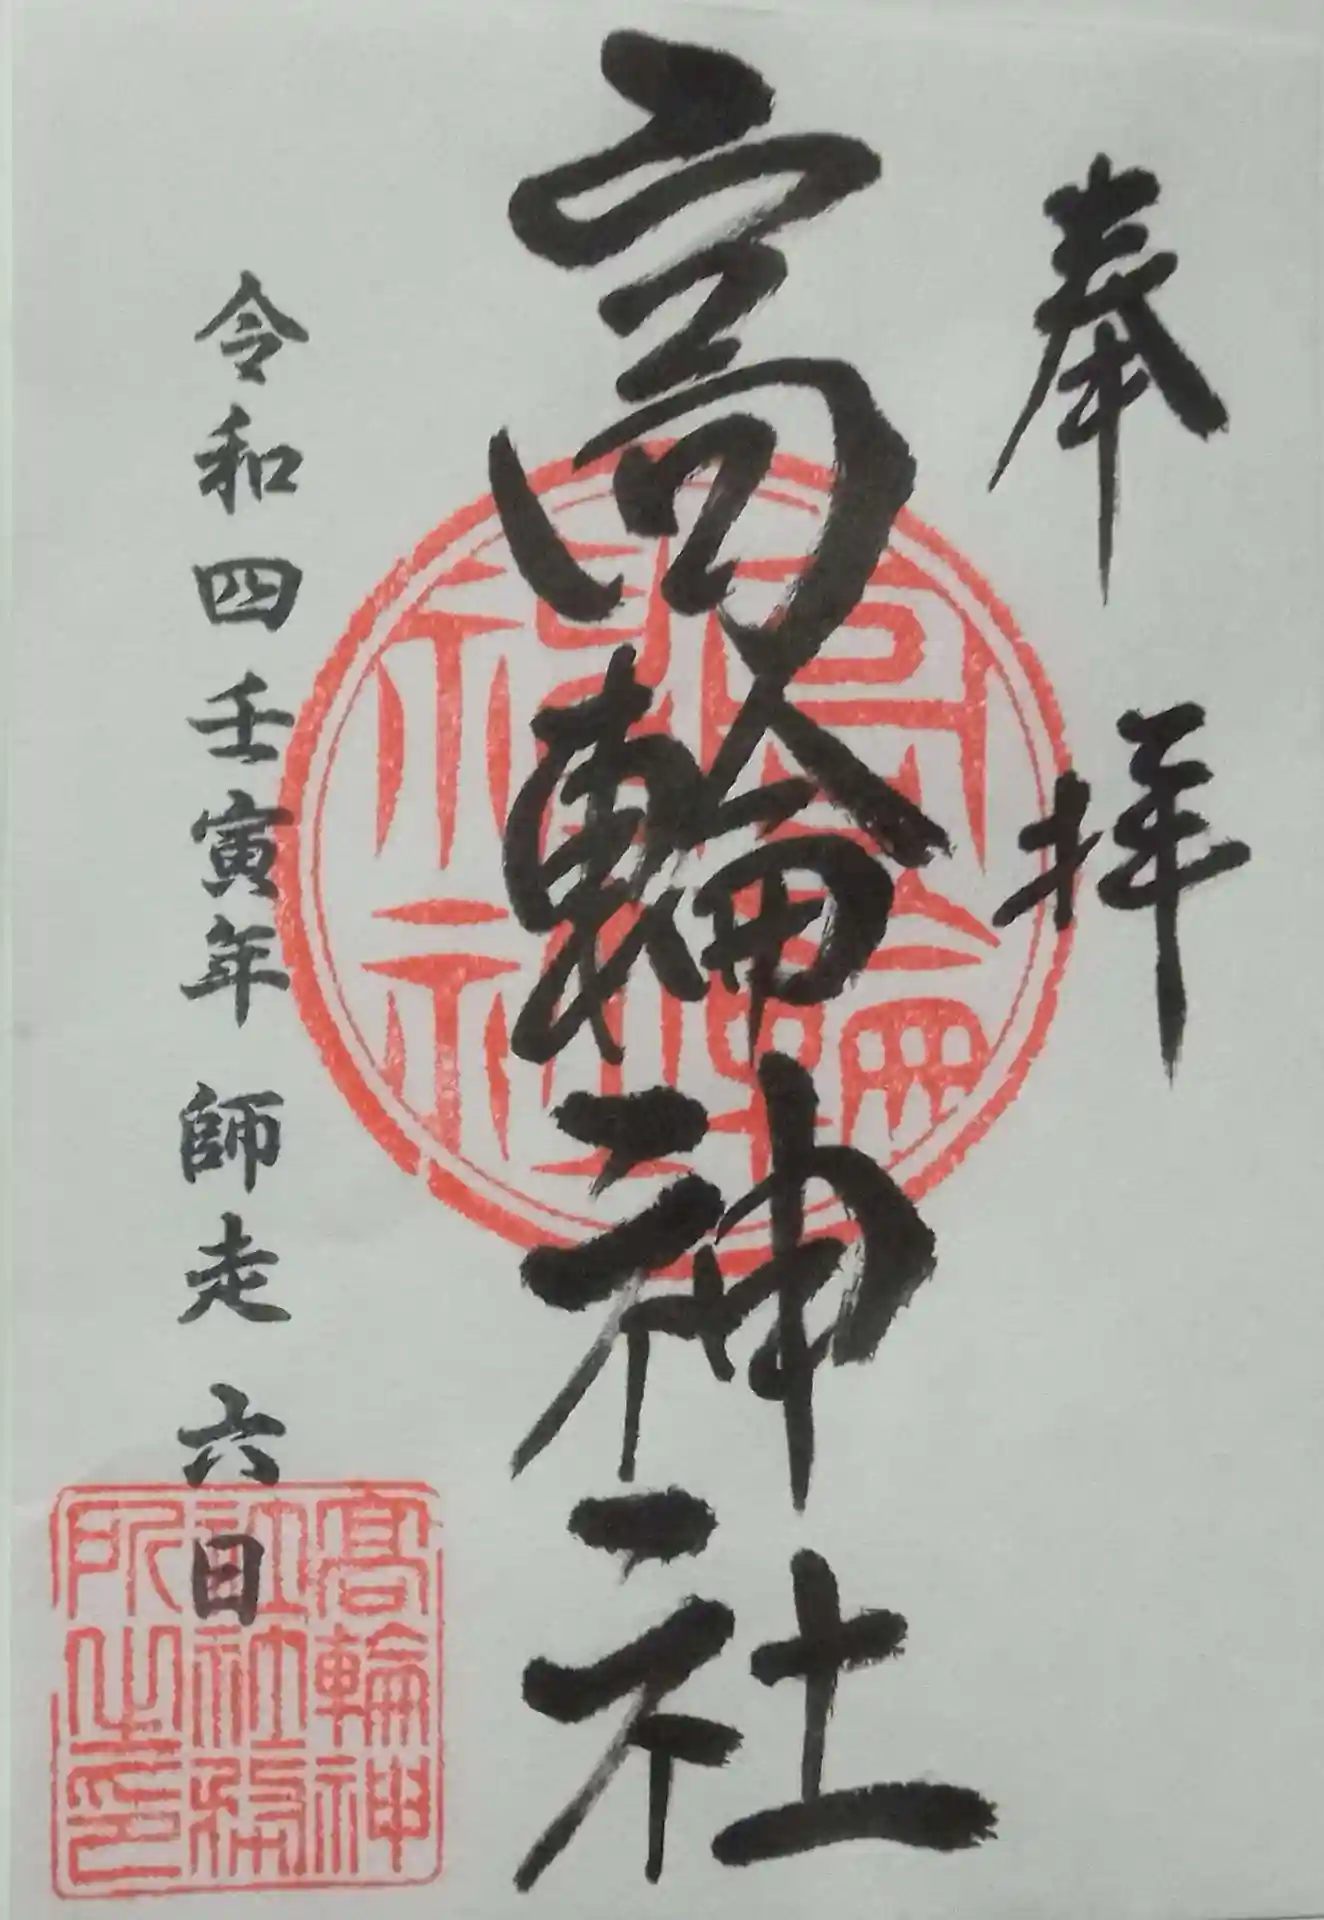 奉拝
高輪神社
令和四壬寅年 師走 六日
高輪神社
高輪神
社社務
所之印